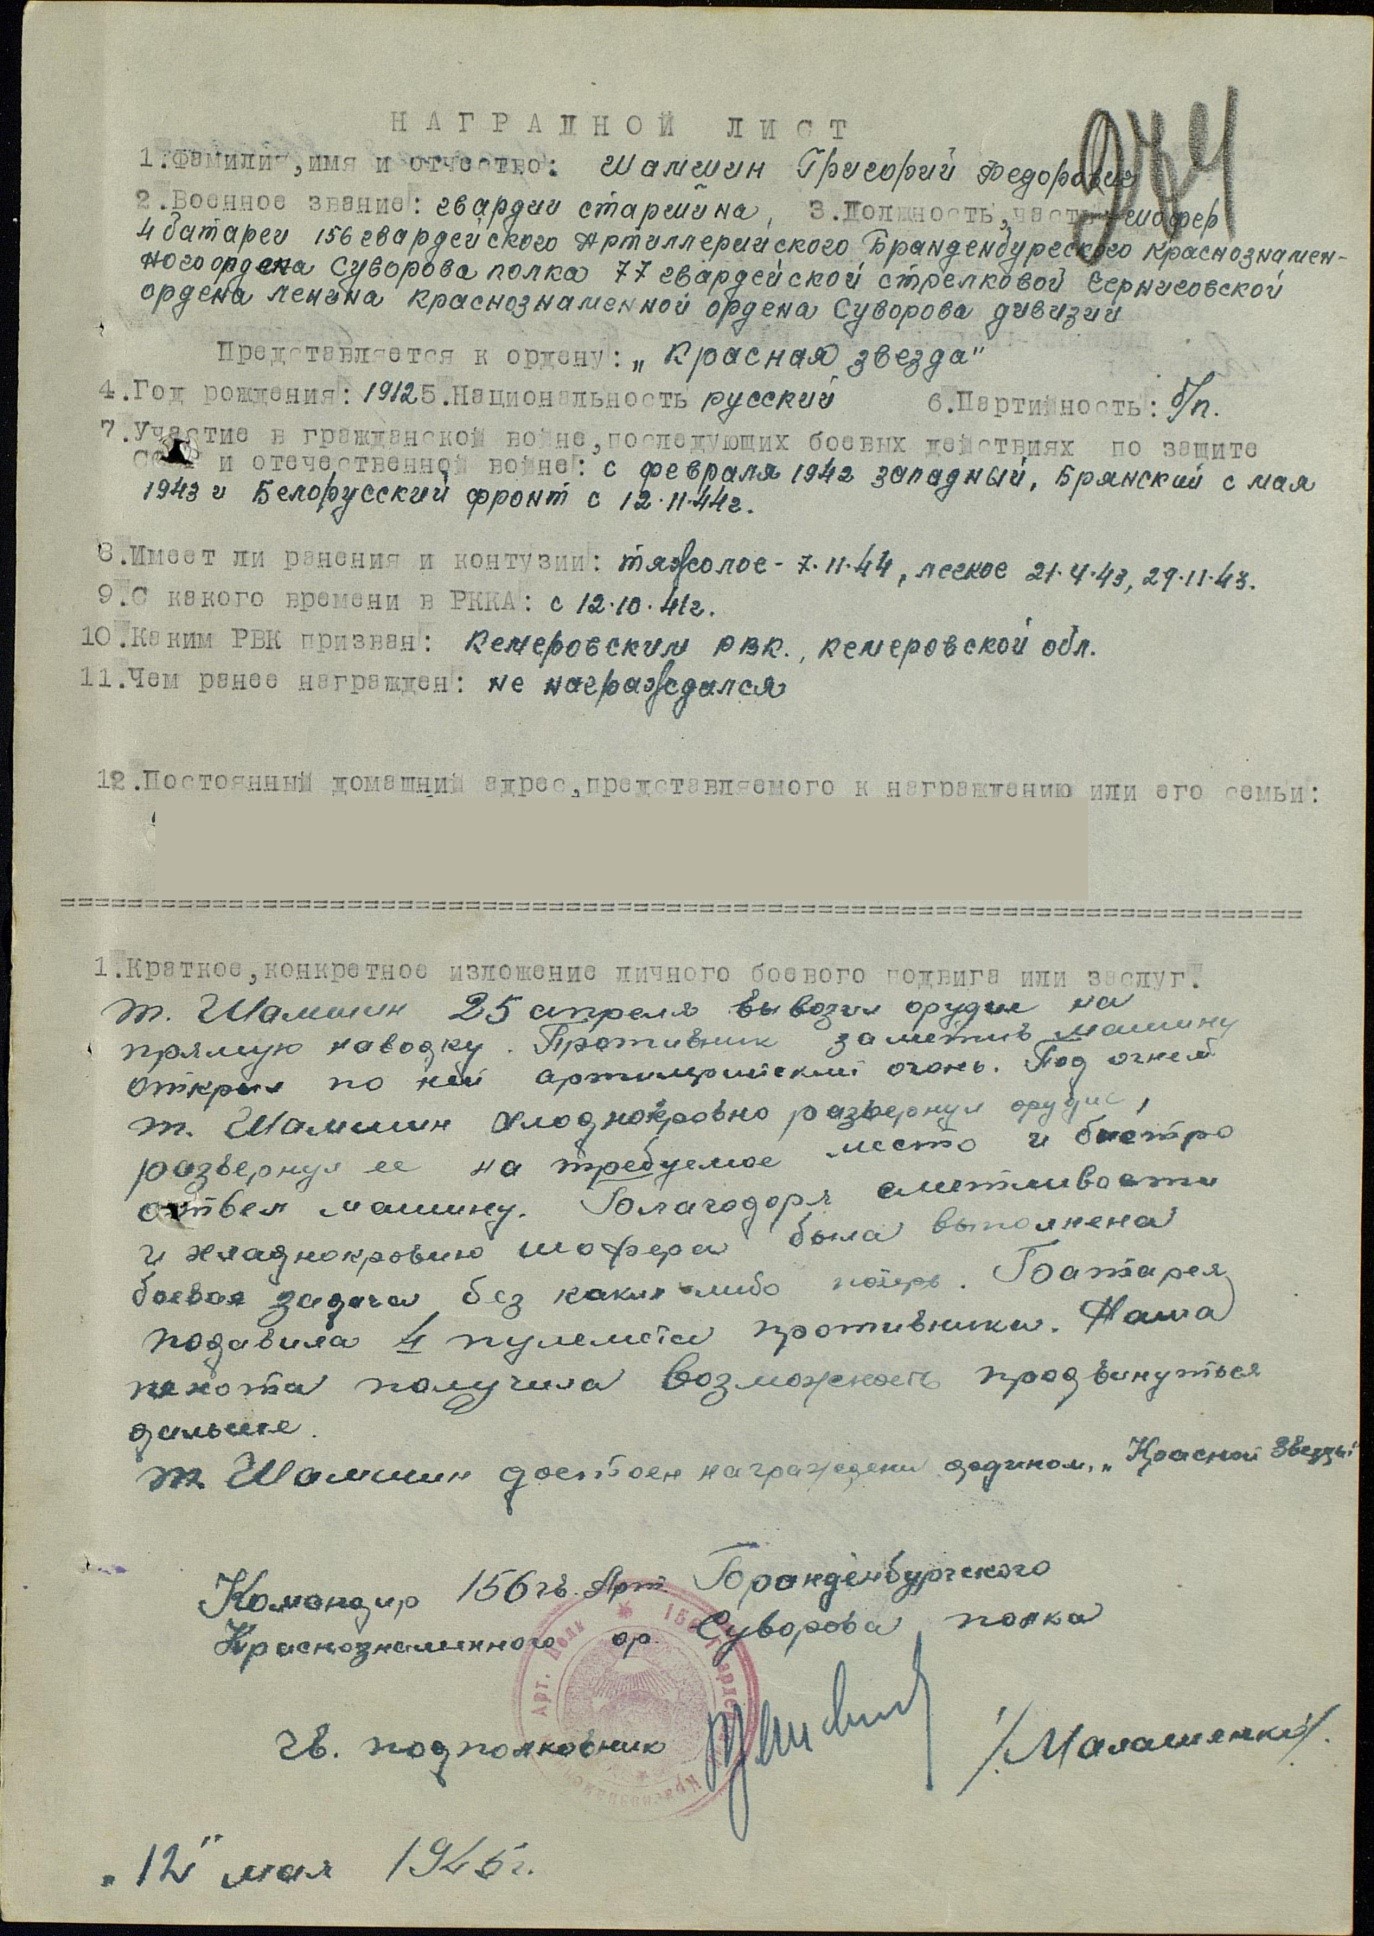 НАГРАДНОЙ ЛИСТ
974
1.Фамилия,имя и отчество: Шамшин Григорий Федорович
2.Военное звание: гвардии старшина, 3.Должность,часть шофер
4 батареи 156 гвардейского Артиллерийского Бранденбургского Краснознамен-
ного ордена Суворова полка 77 гвардейской стрелковой Черниговской
ордена Ленина Краснознаменной ордена Суворова дивизии
Представляется к ордену: „Красная звезда"
4.Год рождения: 1912 5.Национальность русский 6.Партийность: б/п.
7.Участие в гражданской войне,последующих боевых действиях по защите
СССР и отечественной войне: с февраля 1942 западный, Брянский с мая
1943 и Белорусский фронт с 12.11.44г.
8.Имеет ли ранения и контузии: тяжолое - 7.11.44, легкое 21.4.43, 29.11.43.
9.С какого времени в РККА: с 12.10.41г.
10.Каким РВК призван: Кемеровским РВК., Кемеровской обл.
11.Чем ранее награжден: не награждался
12.Постоянный домашний адрес,представляемого к награждению или его семьи:
1.Краткое,конкретное изложение личного боевого подвига или заслуг.
т. Шамшин 25 апреля вывозил орудие на
прямую наводку. Противник заметив машину
открыл по ней артиллрийский огонь. Под огнем
т. Шамшин хлоднокровно развернул орудие,
развернул ее на требуемое место и быстро
отвел машину. Благодоря сметливости
и хладнокровию шофера была выполнена
боевая задача без каких либо потерь. Батарея
подавила 4 пулемета противника. Наша
пехота получила возможность продвинуться
дальше.
т. Шамшин достоен награждения орденом „Красной Звезды"
Командир 156 гв. Арт. Бранденбургского
Краснознаменного ор. Суворова полка
гв. подполковник /Малашенков/.
„12" мая 1945 г.